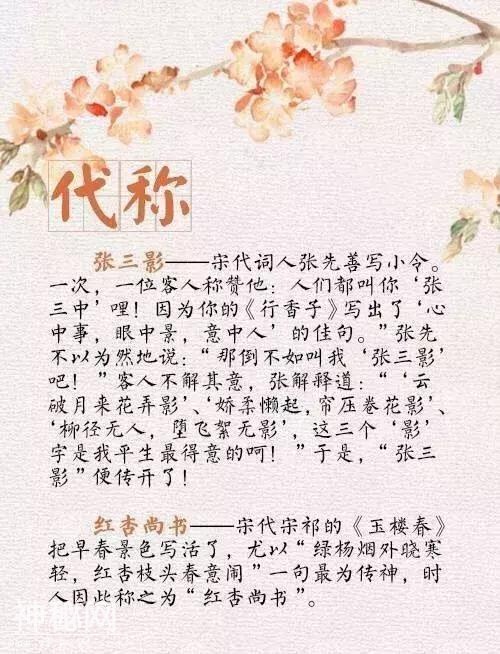 代称
张三影——宋代词人张先善写小令。
一次，一位客人称赞他：人们都叫你‘张
三中’哩！因为你的《行香子》写出了‘心
中事，眼中景，意中人’的佳句。”张先
不以为然地说：“那倒不如叫我‘张三影’
吧！”客人不解其意，张解释道：“‘云
破月来花弄影’、‘娇柔懒起，帘压卷花影’、
‘柳径无人，堕飞絮无影’，这三个‘影’
字是我平生最得意的呵！”于是，“张三
影”便传开了！
红杏尚书——宋代宋祁的《玉楼春》
把早春景色写活了，尤以“绿杨烟外晓寒
轻，红杏枝头春意闹”一句最为传神，时
人因此称之为“红杏尚书”。